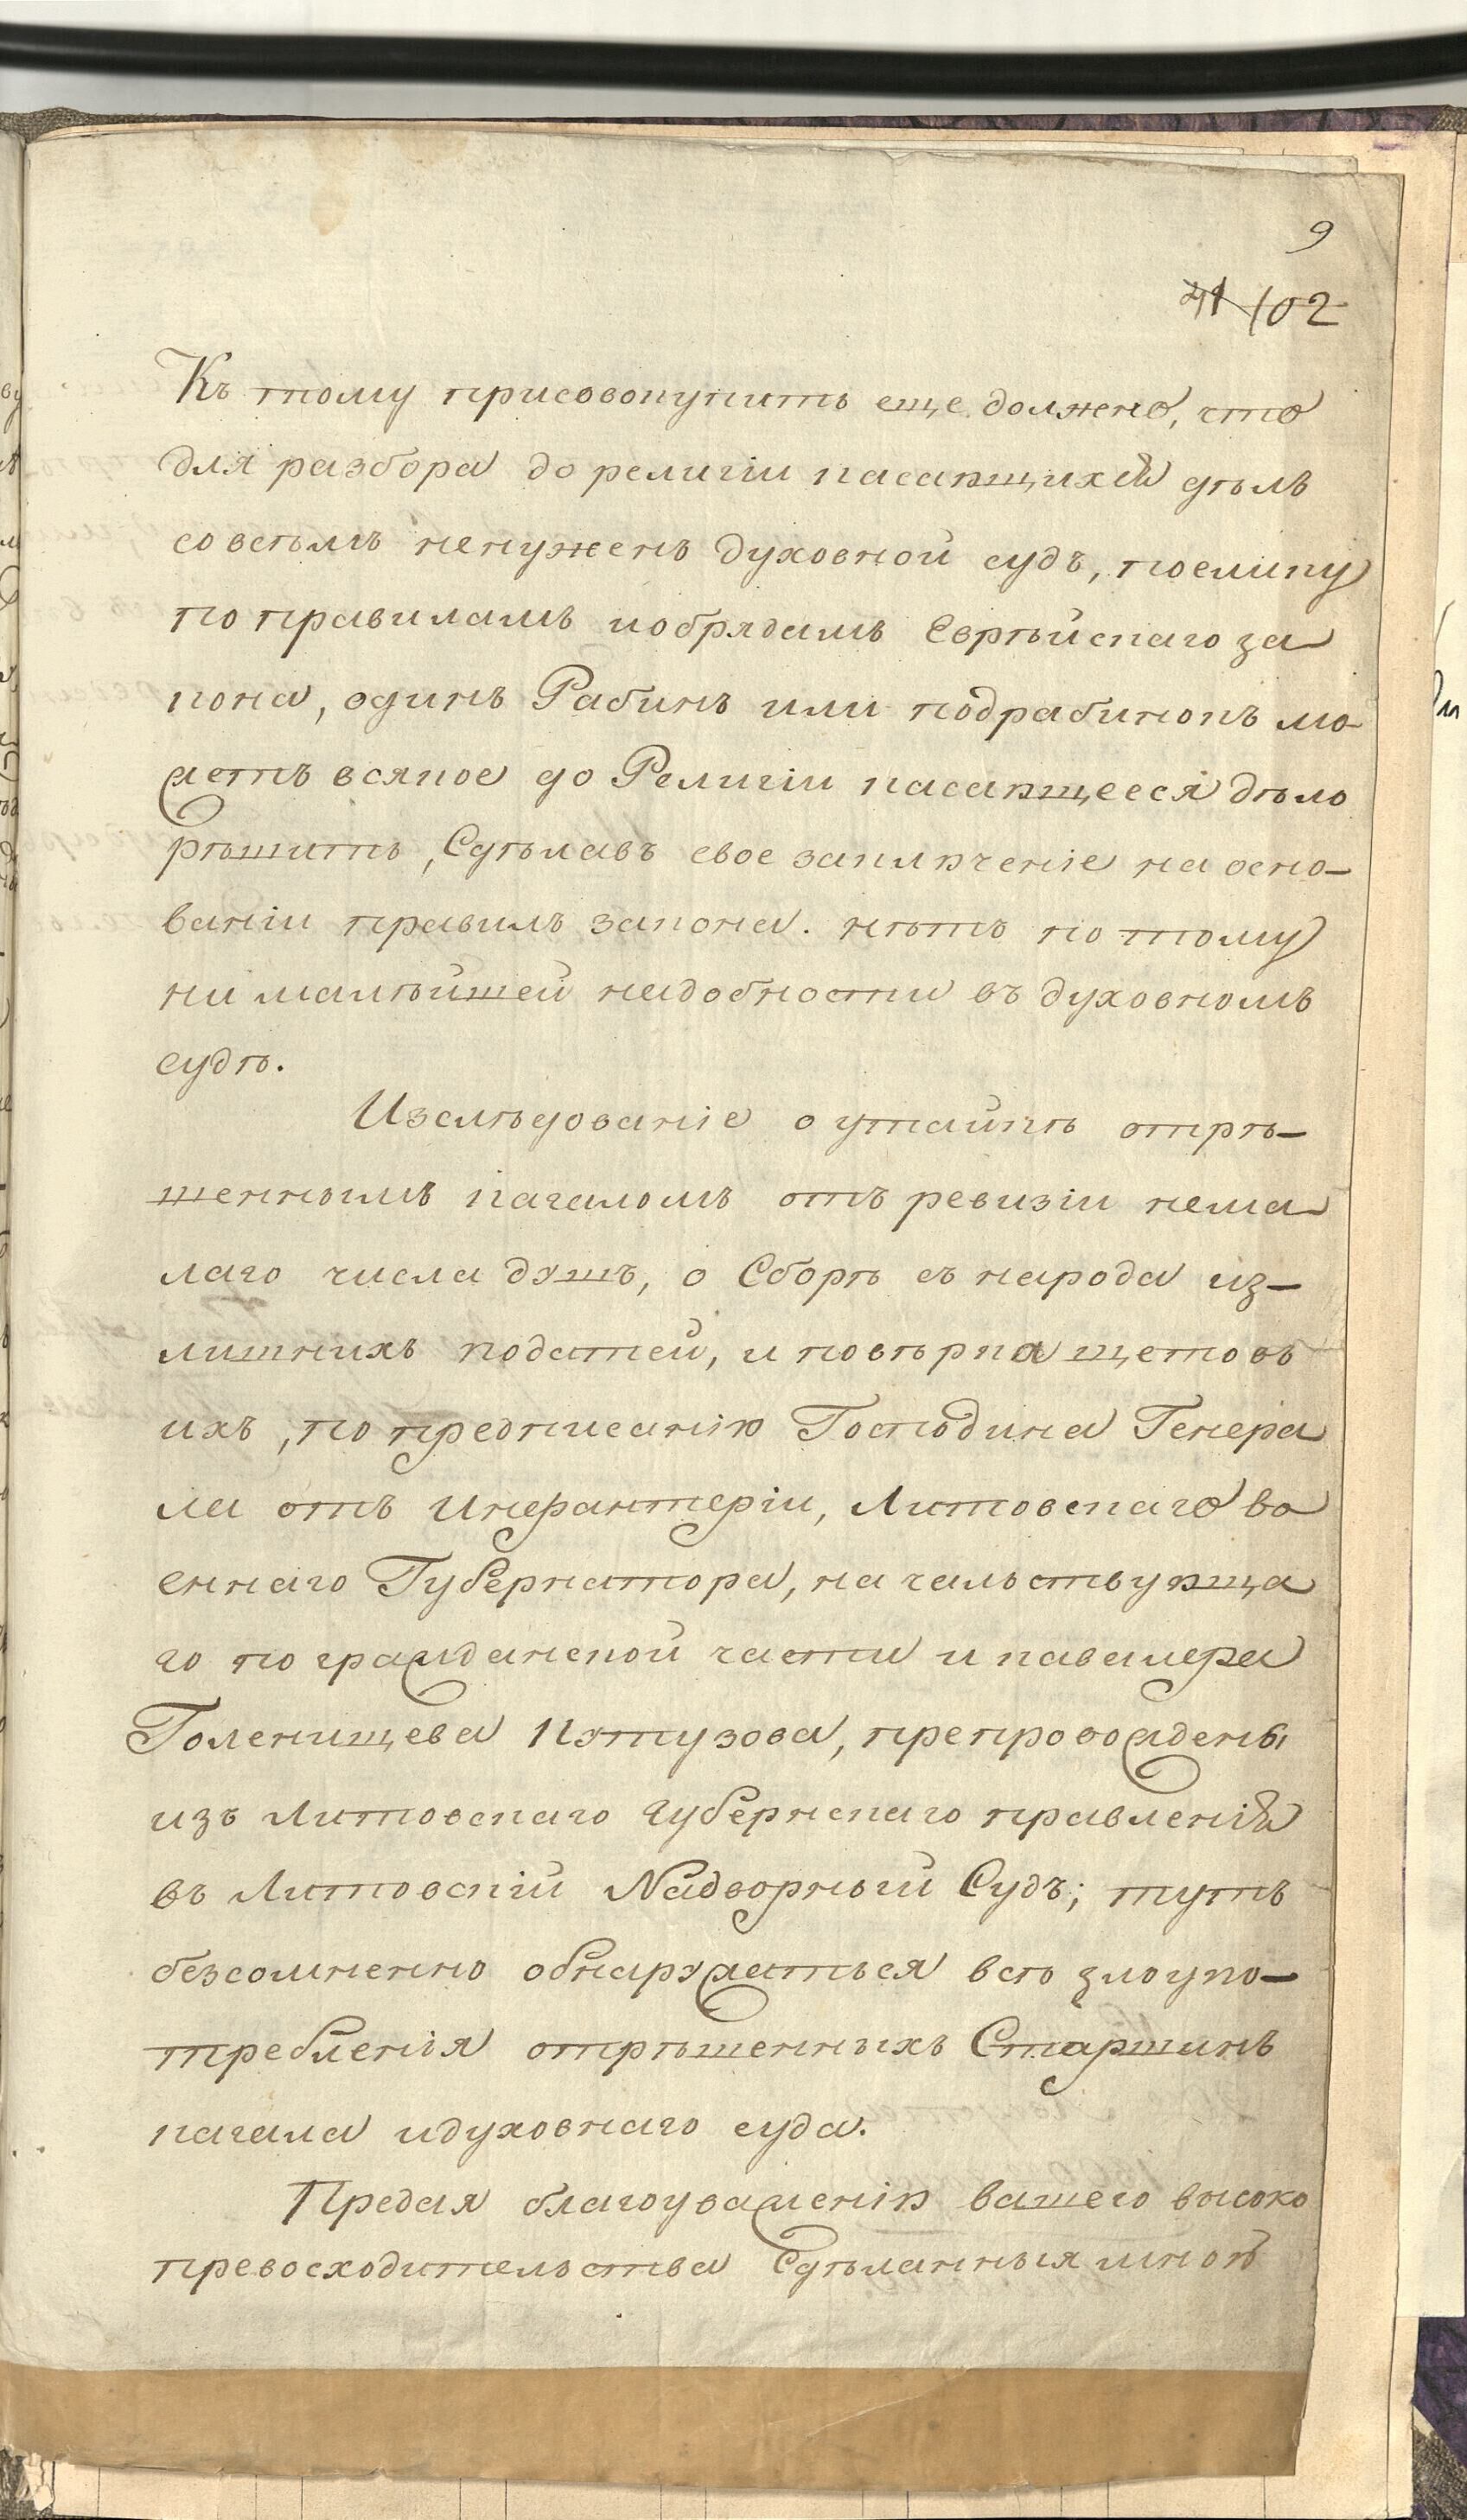 9
41 102
Къ тому присовокупить еще должено, что
для разбора до религіи касающихся дѣлъ
совсѣмъ ненуженъ духовной судъ, поелику
по правиламъ иобрядамъ Еврѣйскаго за
кона, одинъ Рабинъ или подрабинокъ мо-
жетъ всякое до Религіи касающееся дѣло
рѣшить, Сдѣлавъ свое заключеніе на осно-
ваніи правилъ закона. нѣтъ по тому
ни малѣйшей надобности въ духовномъ
судѣ.
Изслѣдованіе о утайкѣ отрѣ-
шеннымъ кагаломъ отъ ревизіи нема
лаго числа душъ, о Сборѣ съ народа из-
лишнихъ податей, и повѣрка щетовъ
ихъ, по предписанію Господина Генера
ла отъ Инфантеріи, Литовскаго во
еннаго Губернатора, начальствующа
го по гражданской части и кавалера
Голенищева Кутузова, препровождены
изъ Литовскаго Губернскаго правленія
въ Литовскій Надворный Судъ; тутъ
безсомненно обнаружаться всѣ злоупо-
требленія отрѣшенныхъ Старшинъ
кагала идуховнаго суда.
Предая благоуваженію вашего высоко
превосходительства Сдѣланныя мною